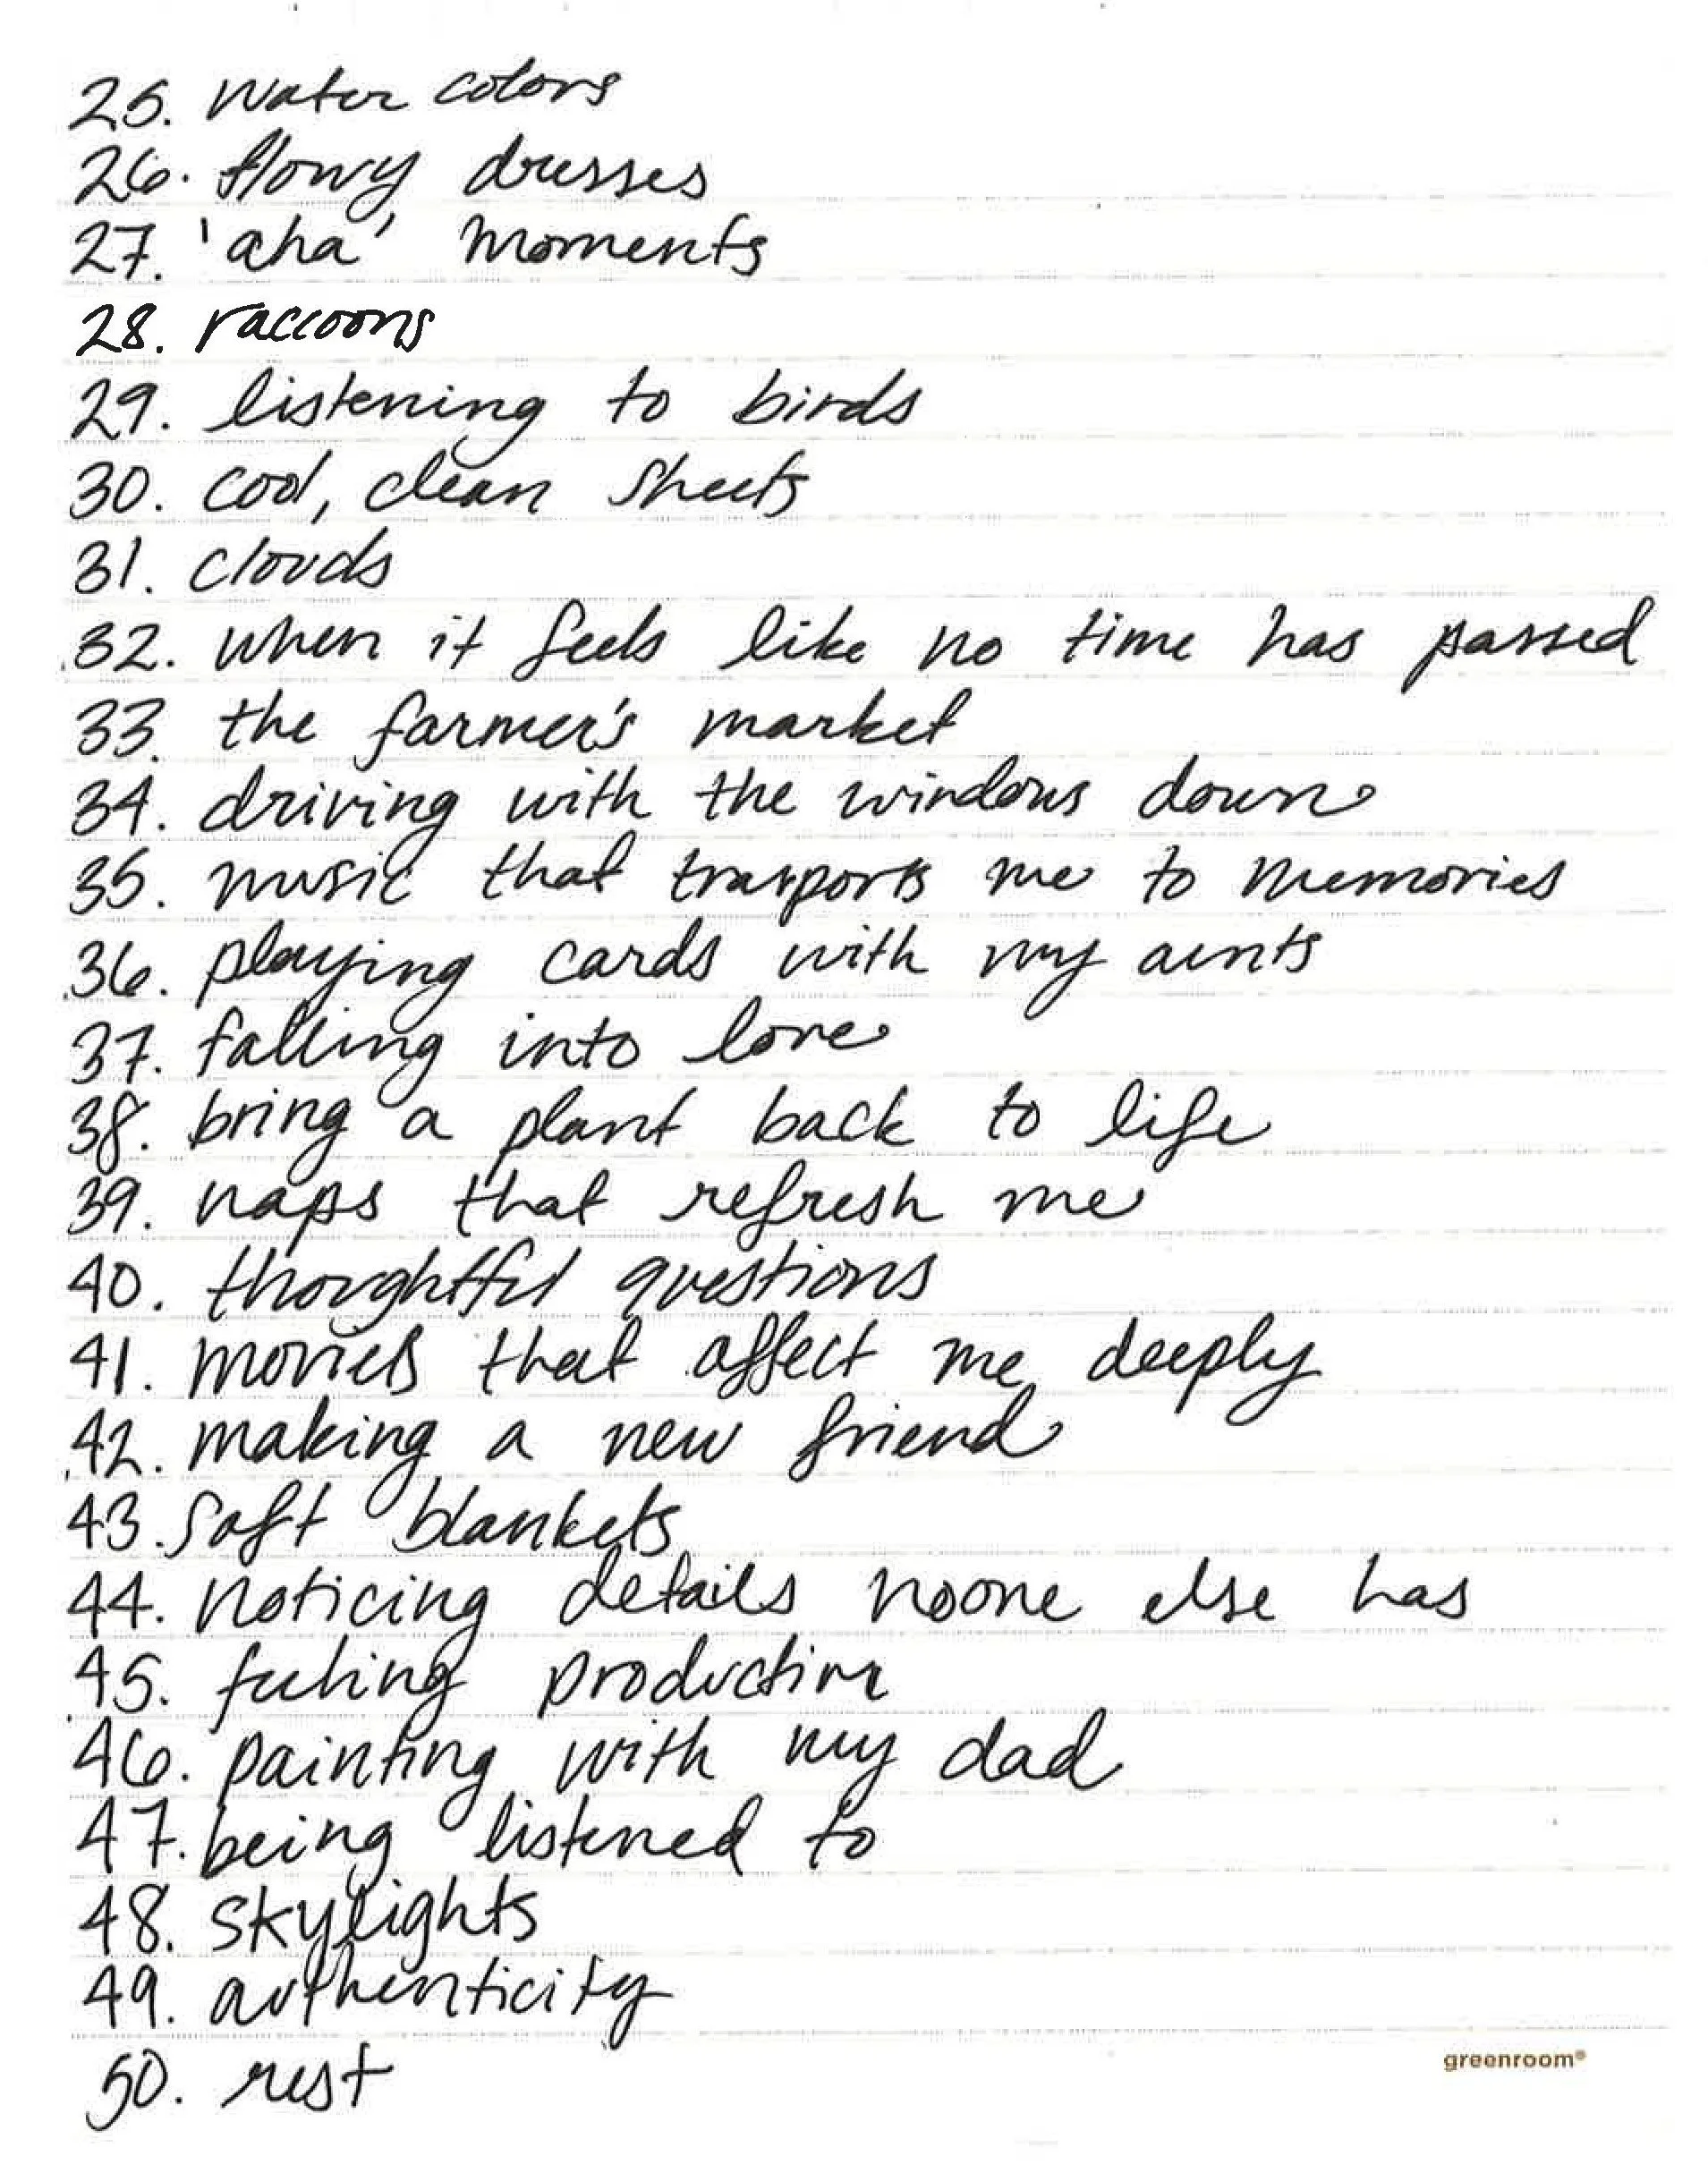 25. water colors
26. flowy dresses
27. 'aha' moments
28. raccoons
29. listening to birds
30. cool, clean sheets
31. clouds
32. when it feels like no time has passed
33. the farmer's market
34. driving with the windows down
35. music that trasports me to memories
36. playing cards with my aunts
37. falling into love
38. bring a plant back to life
39. naps that refresh me
40. thoughtful questions
41. movies that affect me deeply
42. making a new friend
43. soft blankets
44. noticing details noone else has
45. feeling productive
46. painting with my dad
47. being listened to
48. skylights
49. authenticity
50. rest
greenroom®